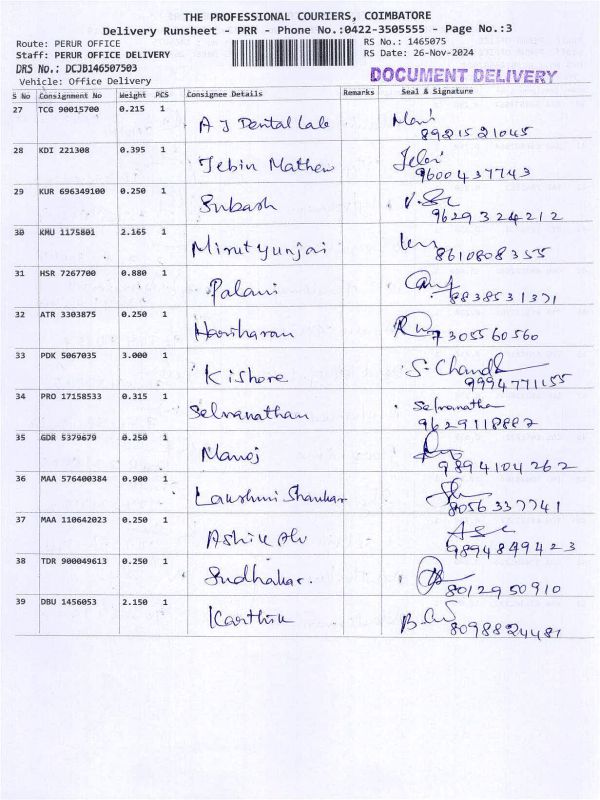 THE PROFESSIONAL COURIERS, COIMBATORE
Delivery Runsheet - PRR - Phone No.:0422-3505555 - Page No.:3
Route: PERUR OFFICE RS No.: 1465075
Staff: PERUR OFFICE DELIVERY RS Date: 26-Nov-2024
DRS No.: DCJB146507503 DOCUMENT DELIVERY
Vehicle: Office Delivery
S No Consignment No Weight PCS Consignee Details Remarks Seal & Signature
27 TCG 90015700 0.215 1 A J Dental Lab
8921521045
28 KDI 221308 0.395 1 Jebin Mathew Jebi
9600437743
29 KUR 696349100 0.250 1 Subash
9629324212
30 KMU 1175801 2.165 1 Mirutyunjai
8610808355
31 HSR 7267700 0.880 1 Palani
8838531371
32 ATR 3303875 0.250 1 Hariharan
7305560560
33 PDK 5067035 3.000 1 Kishore S. Chand
9994771155
34 PRO 17158533 0.315 1 Selvanathan Selvanatha
9629118887
35 GDR 5379679 0.250 1 Manoj
9894104262
36 MAA 576400384 0.900 1 Lakshmi Shankar
8056337741
37 MAA 110642023 0.250 1 Ashik Ali
9894849423
38 TDR 900049613 0.250 1 Sudhakar.
8012950910
39 DBU 1456053 2.150 1 Karthik
8098824481